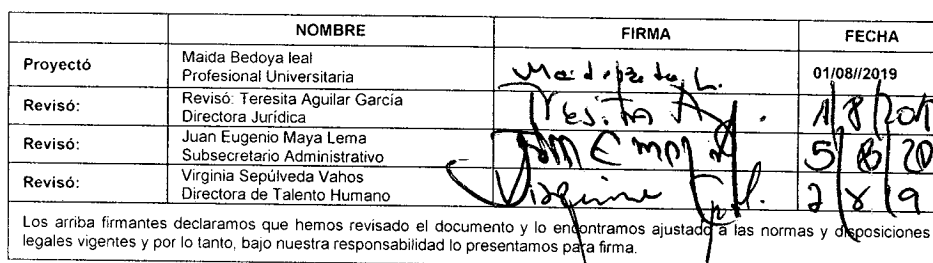 NOMBRE FIRMA FECHA
Proyectó Maida Bedoya leal
Profesional Universitaria 01/08//2019
Revisó: Revisó: Teresita Aguilar García
Directora Jurídica 1/8/201
Revisó: Juan Eugenio Maya Lema
Subsecretario Administrativo 5/8/20
Revisó: Virginia Sepúlveda Vahos
Directora de Talento Humano 2/8/9
Los arriba firmantes declaramos que hemos revisado el documento y lo encontramos ajustado a las normas y disposiciones
legales vigentes y por lo tanto, bajo nuestra responsabilidad lo presentamos para firma.